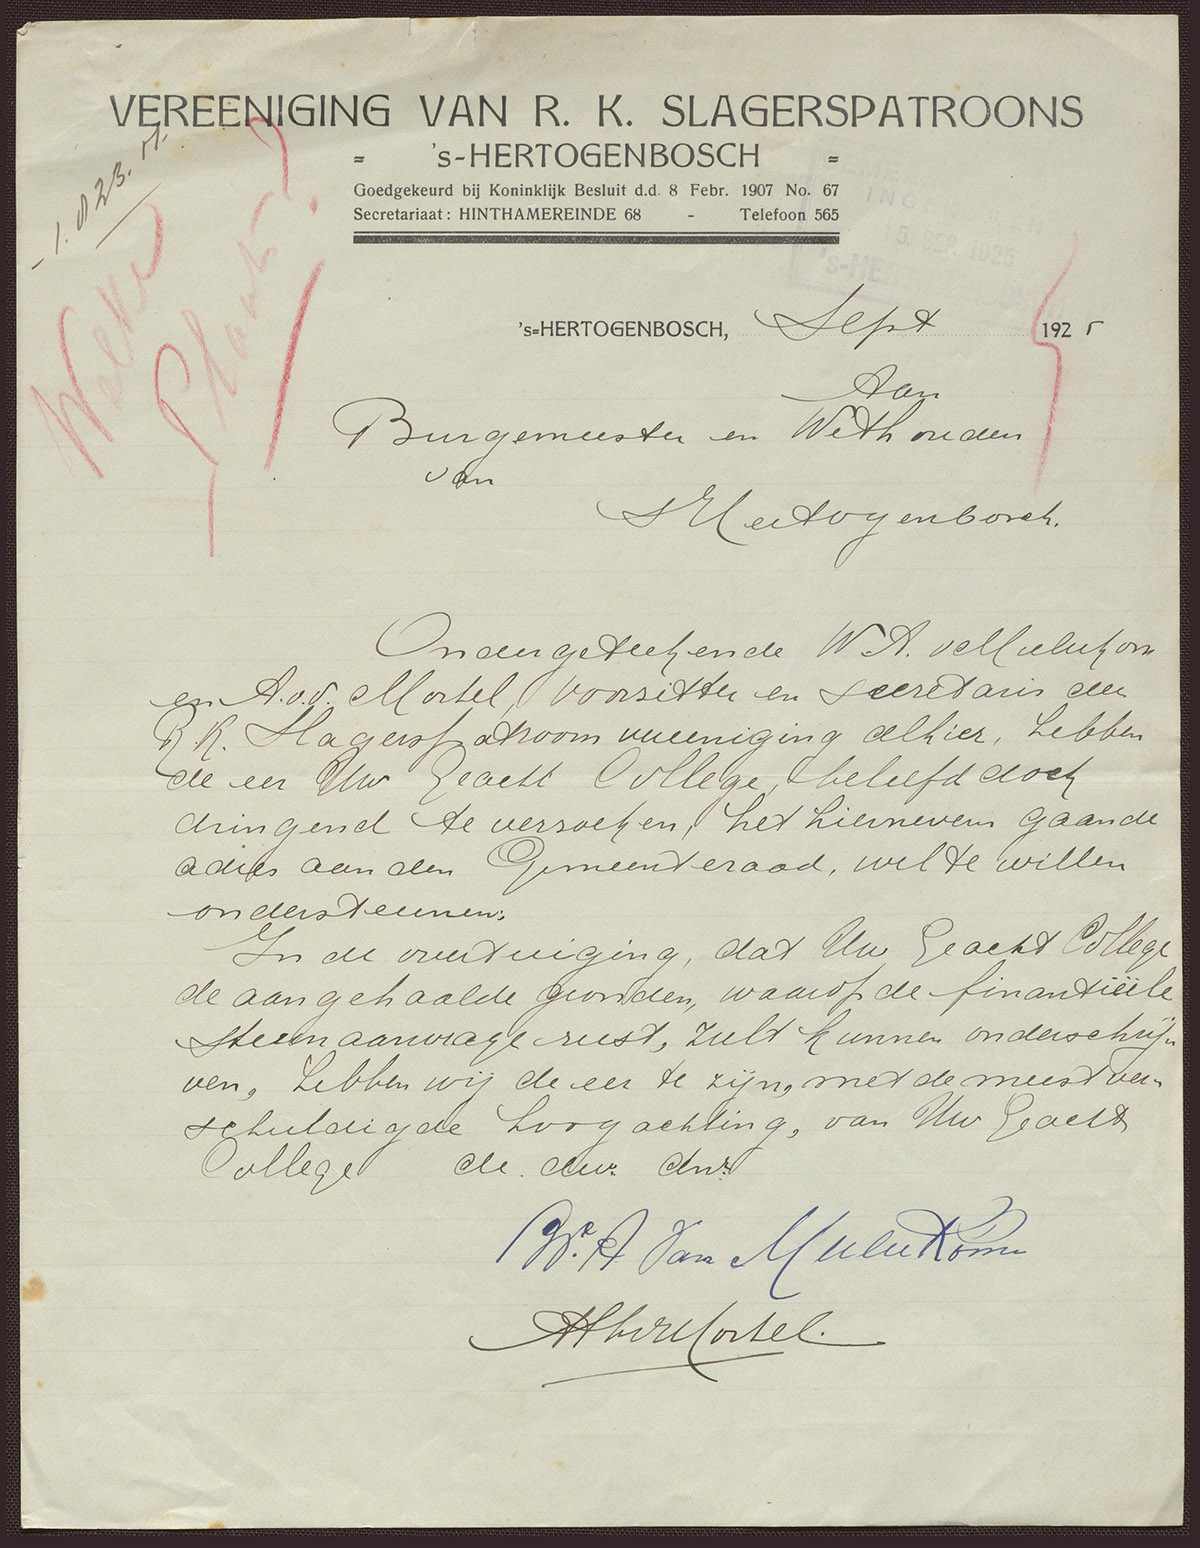 VEREENIGING VAN R. K. SLAGERSPATROONS
= 's-HERTOGENBOSCH =
Goedgekeurd bij Koninklijk Besluit d.d. 8 Febr. 1907 No. 67
Secretariaat: HINTHAMEREINDE 68 - Telefoon 565
Welke
plaats?
INGEKOMEN
15 SEP. 1925
's-HERTOGENBOSCH, Sept 1925
Aan
Burgemeester en Wethouden
van
sHertogenbosch.
Ondergeteekende W. A. v Meulekom
en A. v. d. Mortel, voorzitter en secretaris der
R K. Slagerspatroom vereeniging alhier, hebben
de eer Uw Geacht College, beleefd doch
dringend te verzoeken, het hiernevens gaande
adres aan den Gemeenteraad, wel te willen
ondersteunen.
In de overtuiging, dat Uw Geacht College
de aangehaalde gronden, waarop de finantiëele
steunaanvrage rust, zult kunnen onderschrij-
ven, hebben wij de eer te zijn, met de meest ver-
schuldigde hoogachting, van Uw Geacht
College de dw. dnr.
We. A Van Meulekom
A H vd Mortel.